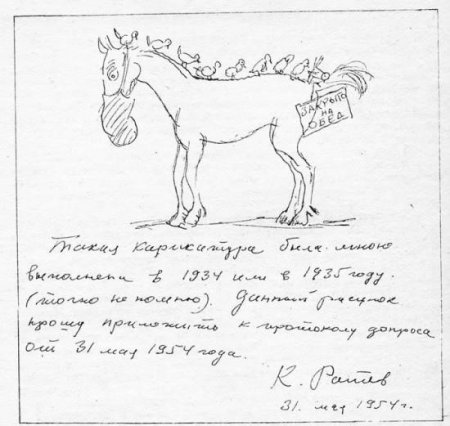 ЗАКРЫТО
НА
ОБЕД
Такая карикатура была мною
выполнена в 1934 или в 1935 году.
(точно не помню). Данный рисунок
прошу приложить к протоколу допроса
от 31 мая 1954 года.
К. Ротов
31. мая 1954 г.